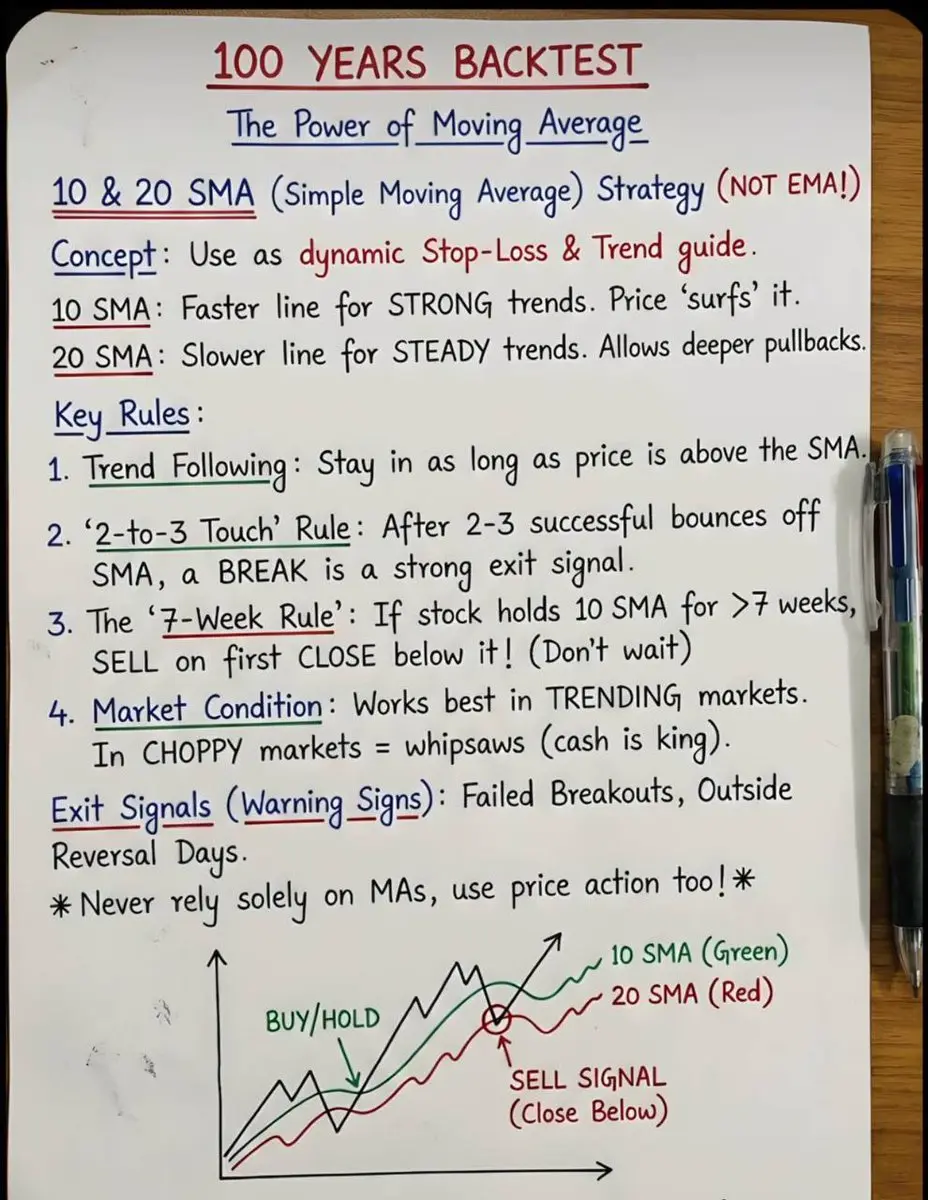 100 YEARS BACKTEST
The Power of Moving Average
10 & 20 SMA (Simple Moving Average) Strategy (NOT EMA!)
Concept: Use as dynamic Stop-Loss & Trend guide.
10 SMA: Faster line for STRONG trends. Price ‘surfs’ it.
20 SMA: Slower line for STEADY trends. Allows deeper pullbacks.
Key Rules:
1. Trend Following: Stay in as long as price is above the SMA.
2. ‘2-to-3 Touch’ Rule: After 2-3 successful bounces off
SMA, a BREAK is a strong exit signal.
3. The ‘7-Week Rule’: If stock holds 10 SMA for >7 weeks,
SELL on first CLOSE below it! (Don't wait)
4. Market Condition: Works best in TRENDING markets.
In CHOPPY markets = whipsaws (cash is king).
Exit Signals (Warning Signs): Failed Breakouts, Outside
Reversal Days.
*Never rely solely on MAs, use price action too!*
10 SMA (Green)
20 SMA (Red)
BUY/HOLD
SELL SIGNAL
(Close Below)